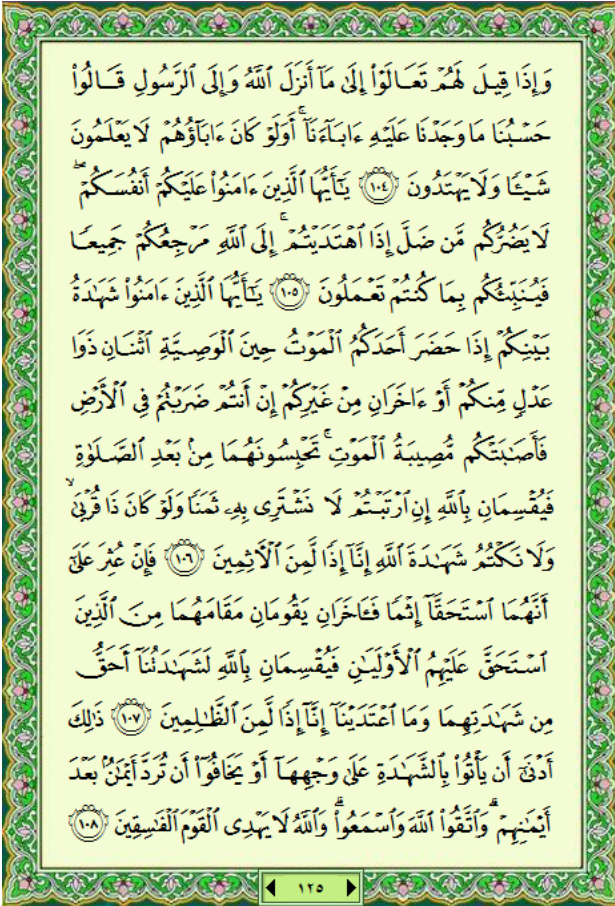 وَإِذَا قِيلَ لَهُمْ تَعَالَوْا۟ إِلَىٰ مَآ أَنزَلَ ٱللَّهُ وَإِلَى ٱلرَّسُولِ قَالُوا۟
حَسْبُنَا مَا وَجَدْنَا عَلَيْهِ ءَابَآءَنَآ ۚ أَوَلَوْ كَانَ ءَابَآؤُهُمْ لَا يَعْلَمُونَ
شَيْـًٔا وَلَا يَهْتَدُونَ ١٠٤ يَـٰٓأَيُّهَا ٱلَّذِينَ ءَامَنُوا۟ عَلَيْكُمْ أَنفُسَكُمْ ۖ
لَا يَضُرُّكُم مَّن ضَلَّ إِذَا ٱهْتَدَيْتُمْ ۚ إِلَى ٱللَّهِ مَرْجِعُكُمْ جَمِيعًا
فَيُنَبِّئُكُم بِمَا كُنتُمْ تَعْمَلُونَ ١٠٥ يَـٰٓأَيُّهَا ٱلَّذِينَ ءَامَنُوا۟ شَهَـٰدَةُ
بَيْنِكُمْ إِذَا حَضَرَ أَحَدَكُمُ ٱلْمَوْتُ حِينَ ٱلْوَصِيَّةِ ٱثْنَانِ ذَوَا
عَدْلٍ مِّنكُمْ أَوْ ءَاخَرَانِ مِنْ غَيْرِكُمْ إِنْ أَنتُمْ ضَرَبْتُمْ فِى ٱلْأَرْضِ
فَأَصَـٰبَتْكُم مُّصِيبَةُ ٱلْمَوْتِ ۚ تَحْبِسُونَهُمَا مِنۢ بَعْدِ ٱلصَّلَوٰةِ
فَيُقْسِمَانِ بِٱللَّهِ إِنِ ٱرْتَبْتُمْ لَا نَشْتَرِى بِهِۦ ثَمَنًا وَلَوْ كَانَ ذَا قُرْبَىٰ ۙ
وَلَا نَكْتُمُ شَهَـٰدَةَ ٱللَّهِ إِنَّآ إِذًا لَّمِنَ ٱلْـَٔاثِمِينَ ١٠٦ فَإِنْ عُثِرَ عَلَىٰٓ
أَنَّهُمَا ٱسْتَحَقَّآ إِثْمًا فَـَٔاخَرَانِ يَقُومَانِ مَقَامَهُمَا مِنَ ٱلَّذِينَ
ٱسْتَحَقَّ عَلَيْهِمُ ٱلْأَوْلَيَـٰنِ فَيُقْسِمَانِ بِٱللَّهِ لَشَهَـٰدَتُنَآ أَحَقُّ
مِن شَهَـٰدَتِهِمَا وَمَا ٱعْتَدَيْنَآ إِنَّآ إِذًا لَّمِنَ ٱلظَّـٰلِمِينَ ١٠٧ ذَٰلِكَ
أَدْنَىٰٓ أَن يَأْتُوا۟ بِٱلشَّهَـٰدَةِ عَلَىٰ وَجْهِهَآ أَوْ يَخَافُوٓا۟ أَن تُرَدَّ أَيْمَـٰنٌۢ بَعْدَ
أَيْمَـٰنِهِمْ ۗ وَٱتَّقُوا۟ ٱللَّهَ وَٱسْمَعُوا۟ ۗ وَٱللَّهُ لَا يَهْدِى ٱلْقَوْمَ ٱلْفَـٰسِقِينَ ١٠٨
١٢٥